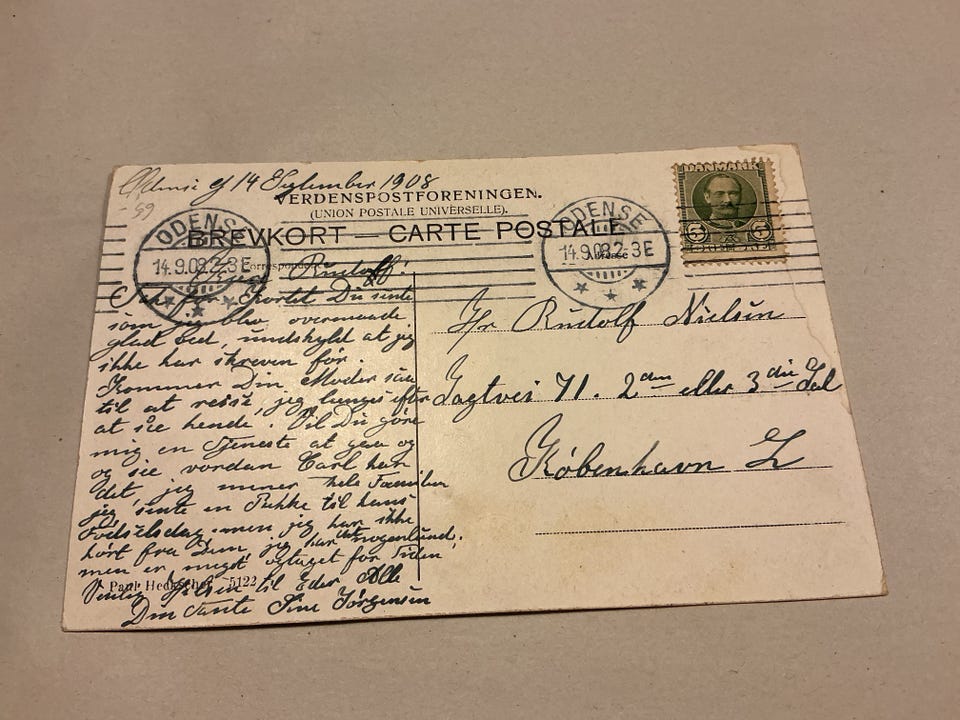 Odense d 14 September 1908
- 99
VERDENSPOSTFORENINGEN.
(UNION POSTALE UNIVERSELLE).
BREVKORT — CARTE POSTALE
ODENSE
14.9.08.2-3E
ODENSE
14.9.08.2-3E
DANMARK
5 5
Correspondance
Adresse
Kjære Rudolf!
Tak for Kortet Du sente
som jeg blev overmaade
glad ved, undskyld at jeg
ikke har skreven før.
Kommer Din Moder
til at reise, jeg længes efter
at see hende. Vil Du gøre
mig en Tjeneste at gaa og
og see vordan Carl har
det, jeg mener hele Familien
jeg sente en Pakke til hans
Fødselsdag men jeg har ikke
hørt fra Dem, jeg har det nogenlund,
men er meget optaget for Tiden
Venlig Hilsen til Eder Alle
Din Tante Sine Jørgensen
Paul Heckscher 5122
Hr Rudolf Nielsen
Jagtvei 71. 2den eller 3die Sal
København L